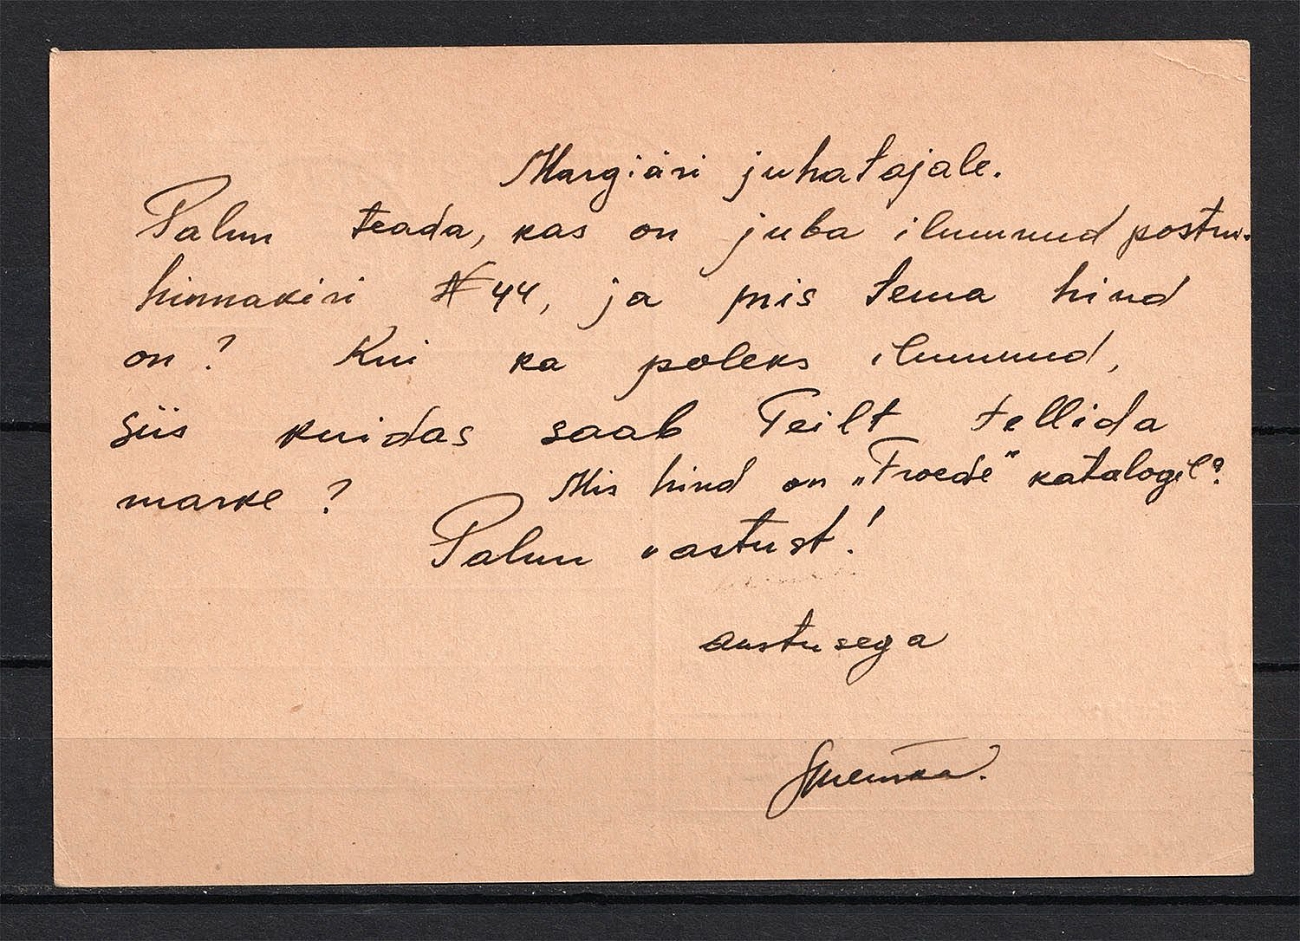 Margiäri juhatajale.
Palun teada, kas on juba ilmunud postm.
hinnakiri № 44, ja mis tema hind
on? Kui ka poleks ilmunud,
siis kuidas saab Teilt tellida
marke? Mis hind on „Froede" kataloogil?
Palun vastust!
austusega